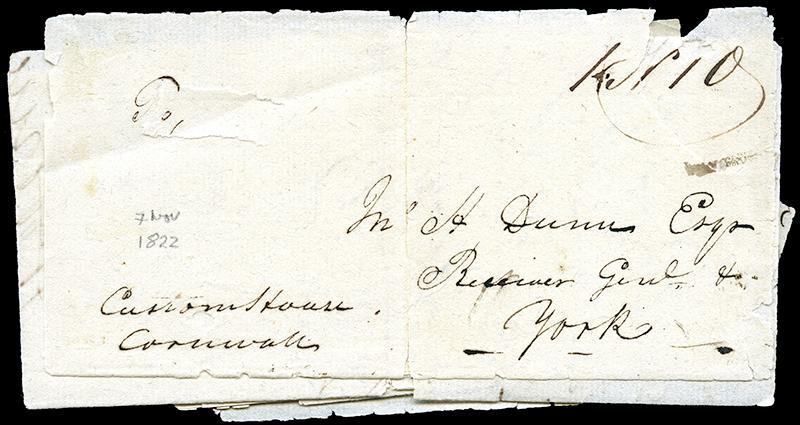 Po,
7 Nov
1822
Jnº H Dunn Esqr
Receiver Genl. &
York
Custom House.
Cornwall